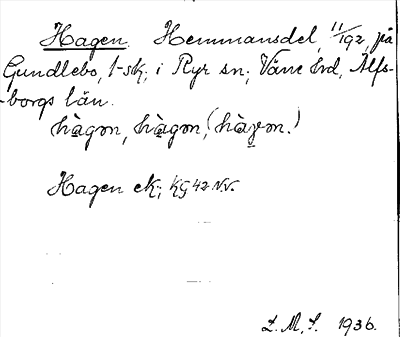 Hagen. Hemmansdel, 11/192, på
Gundlebo, 1-sk; i Ryr sn; Väne hd, Älfs-
-borgs län.
hàgon, hàgon, (hàgon.)
Hagen ek; KG 42 N.V.
L. M. S. 1936.